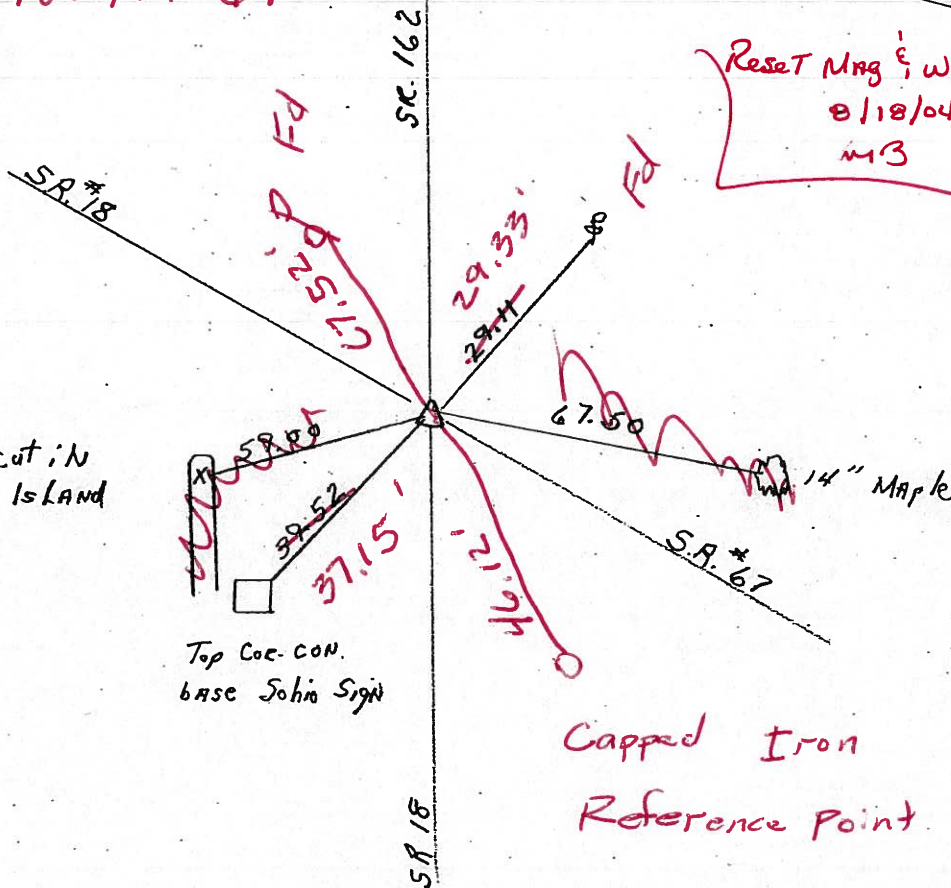 SR. 162
Reset Mag & W
8/18/04
MB
Fd
Fd
S.R. #18
67.52'
29.33'
29.11
67.50
14" Maple
59.00
cut in
Island
39.52
37.15'
46.12'
S.R. #67
Top Cor. Con.
base Sohio Sign
Capped Iron
Reference Point
SR 18